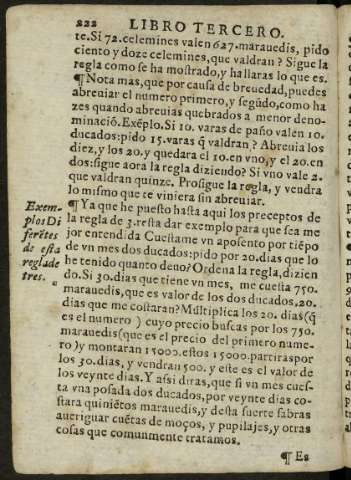 222 LIBRO TERCERO.
te. Si 72. celemines valen 627. marauedis, pido
ciento y doze celemines, que valdran? Sigue la
regla como se ha mostrado, y hallaras lo que es.
¶ Nota mas, que por causa de breuedad, puedes
abreuiar el numero primero, y segũdo, como ha
zes quando abreuias quebrados a menor deno-
minació. Exẽplo. Si 10. varas de paño valen 20.
ducados: pido 15. varas q̃ valdran? Abreuia los
diez, y los 20. y quedara el 10. en vno, y el 20. en
dos: sigue aora la regla diziendo? Si vno vale 2.
que valdran quinze. Prosigue la regla, y vendra
lo mismo que te viniera sin abreuiar.
Exem-
plos Di
ferẽtes
de esta
regla de
tres.
¶ Ya que he puesto hasta aqui los preceptos de
la regla de 3. resta dar exemplo para que sea me
jor entendida Cuestame vn aposento por tiẽpo
de vn mes dos ducados: pido por 20. dias que lo
he tenido quanto deuo? Ordena la regla, dizien
do. Si 30. dias que tiene vn mes, me cuesta 750.
marauedis, que es valor de los dos ducados, 20.
dias que me costaran? Multiplica los 20. dias (q̃
es el numero) cuyo precio buscas por los 750.
marauedis (que es el precio del primero nume-
ro) y montaran 15000. estos 15000. partiras por
los 30. dias, y vendran 500. y este es el valor de
los veynte dias. Y assi diras, que si vn mes cues-
ta vna posada dos ducados, por veynte dias co-
stara quiniẽtos marauedis, y desta suerte sabras
aueriguar cuẽtas de moços, y pupilajes, y otras
cosas que comunmente tratamos.
¶ Es